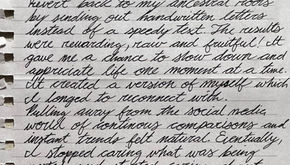 revert back to my ancestral roots
by sending out handwritten letters
instead of a speedy text. The results
were rewarding, raw and fruitful! It
gave me a chance to slow down and
appreciate life one moment at a time.
It created a version of myself which
I longed to reconnect with.
Pulling away from the social media
world of continous comparisons and
instant trends felt natural. Eventually,
I stopped caring what was being